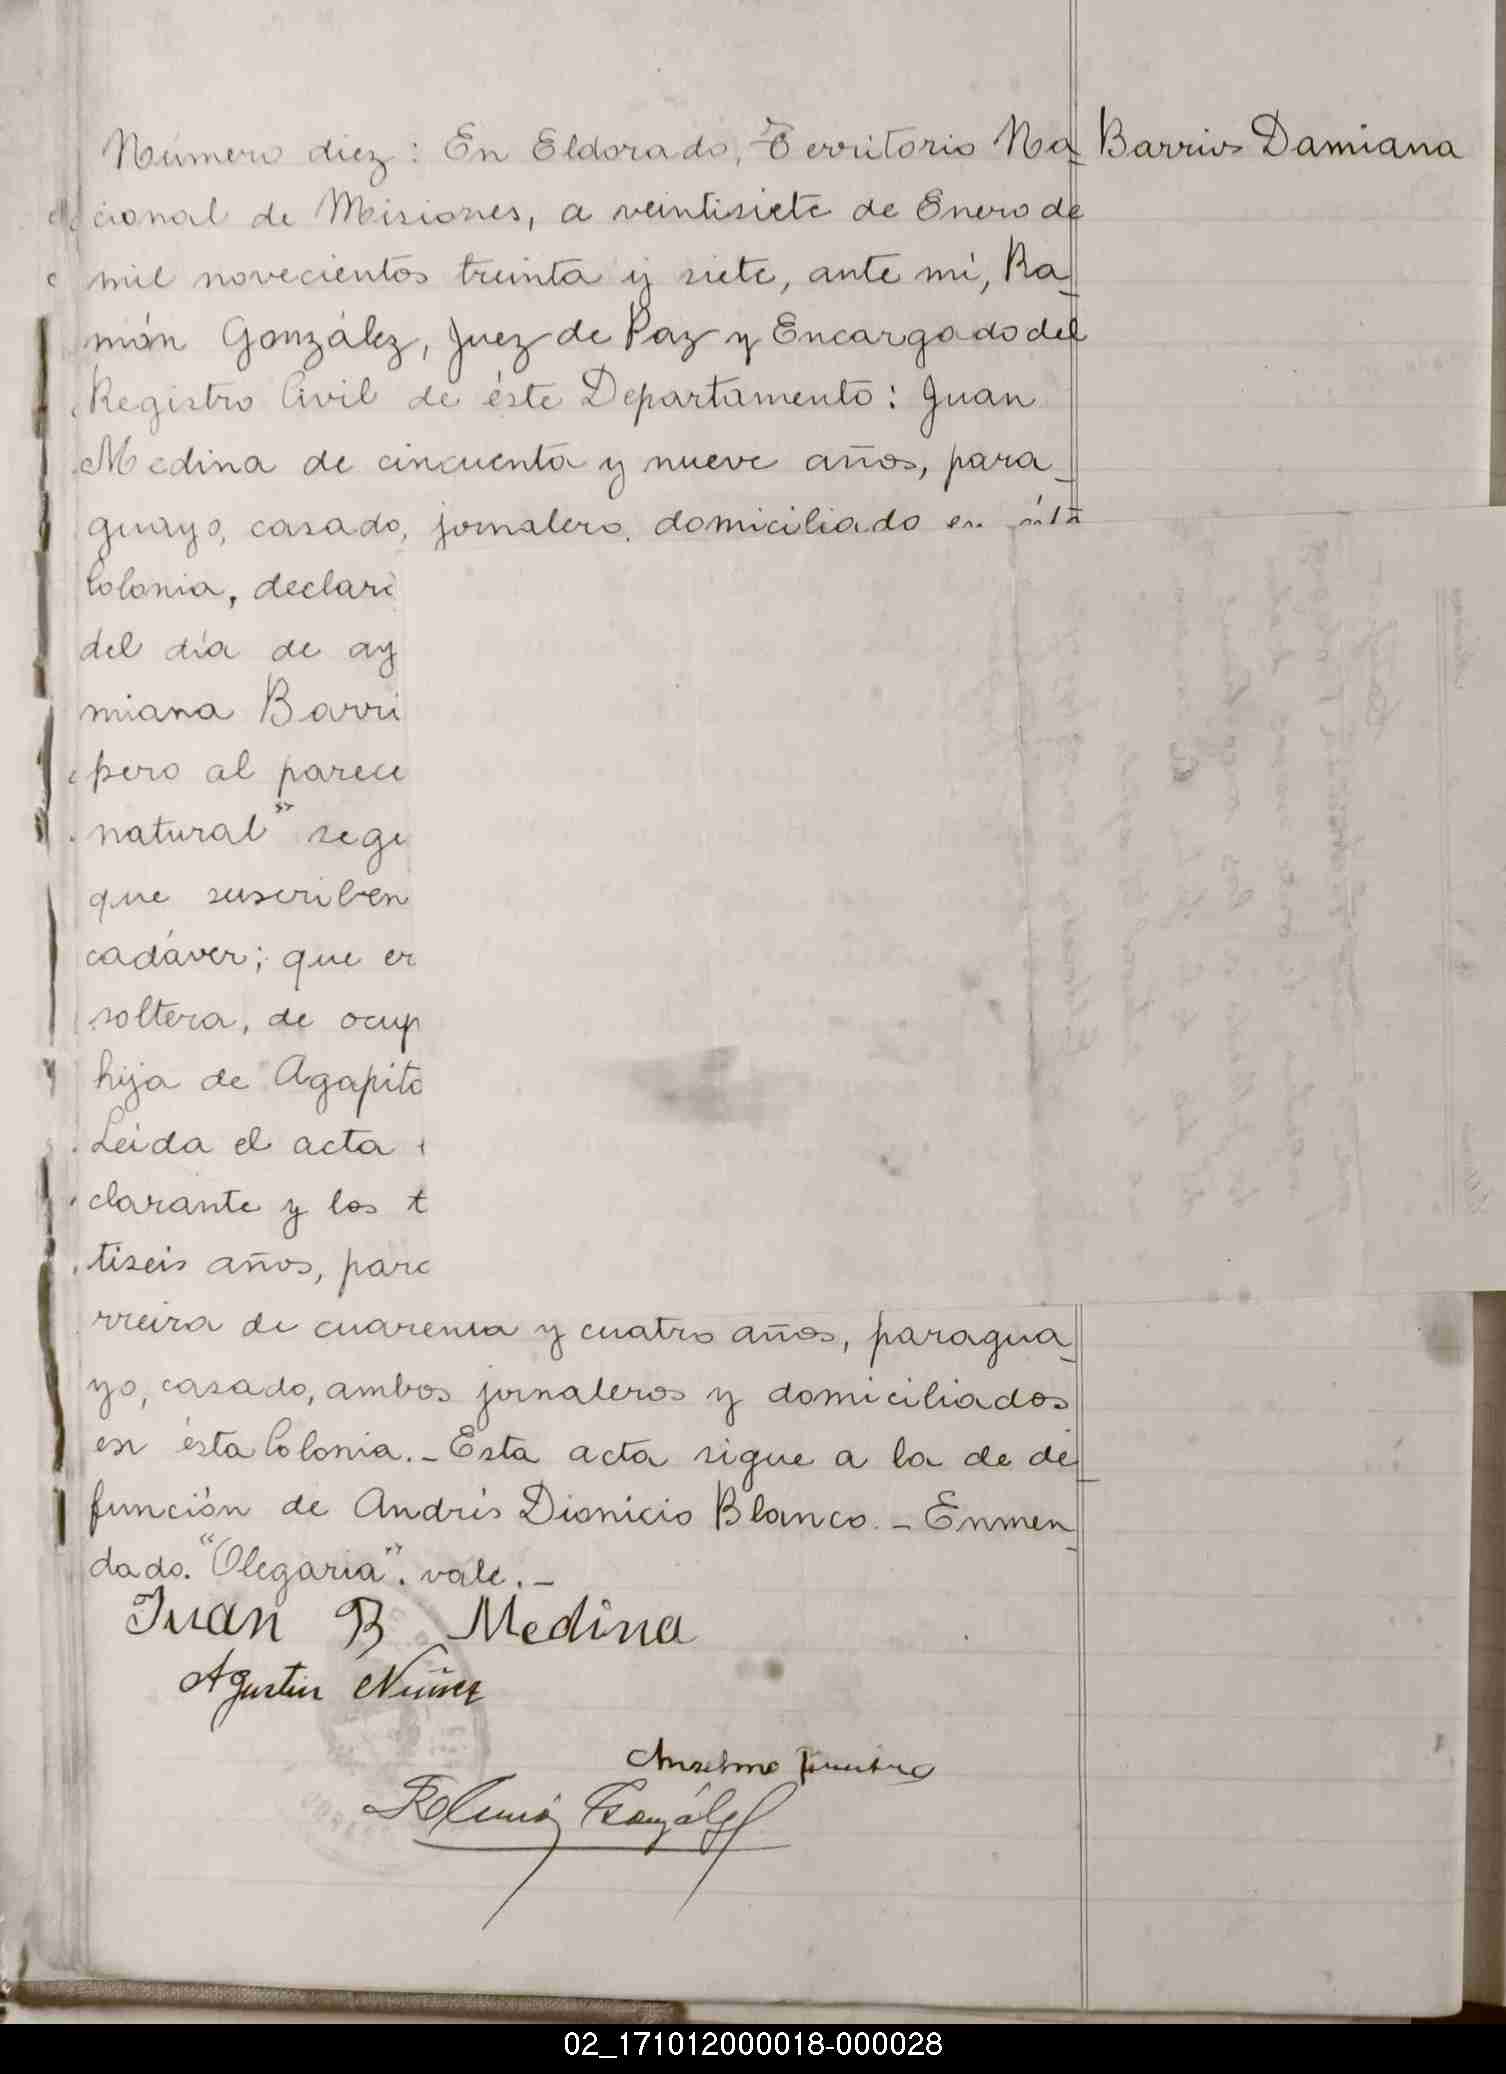 Número diez: En Eldorado, Territorio Na_
Barrios Damiana
cional de Misiones, a veintisiete de Enero de
mil novecientos treinta y siete, ante mí, Ra_
món González, Juez de Paz y Encargado del
Registro Civil de éste Departamento: Juan
Medina de cincuenta y nueve años, para_
guayo, casado, jornalero, domiciliado en ésta
Colonia, declar
del día de ay
miana Barri
pero al parece
natural" seg
que suscriben
cadáver; que er
soltera, de ocup
hija de Agapito
Leída el acta
clarante y los t
tiseis años, para
rreira de cuarenta y cuatro años, paragua_
yo, casado, ambos jornaleros y domiciliados
en ésta Colonia._ Esta acta sigue a la de de_
función de Andrés Dionicio Blanco._ Enmen_
dado. "Olegaria". vale._
Juan B Medina
Agustin Nuñez
Anselmo
Ramón González
02_171012000018-000028